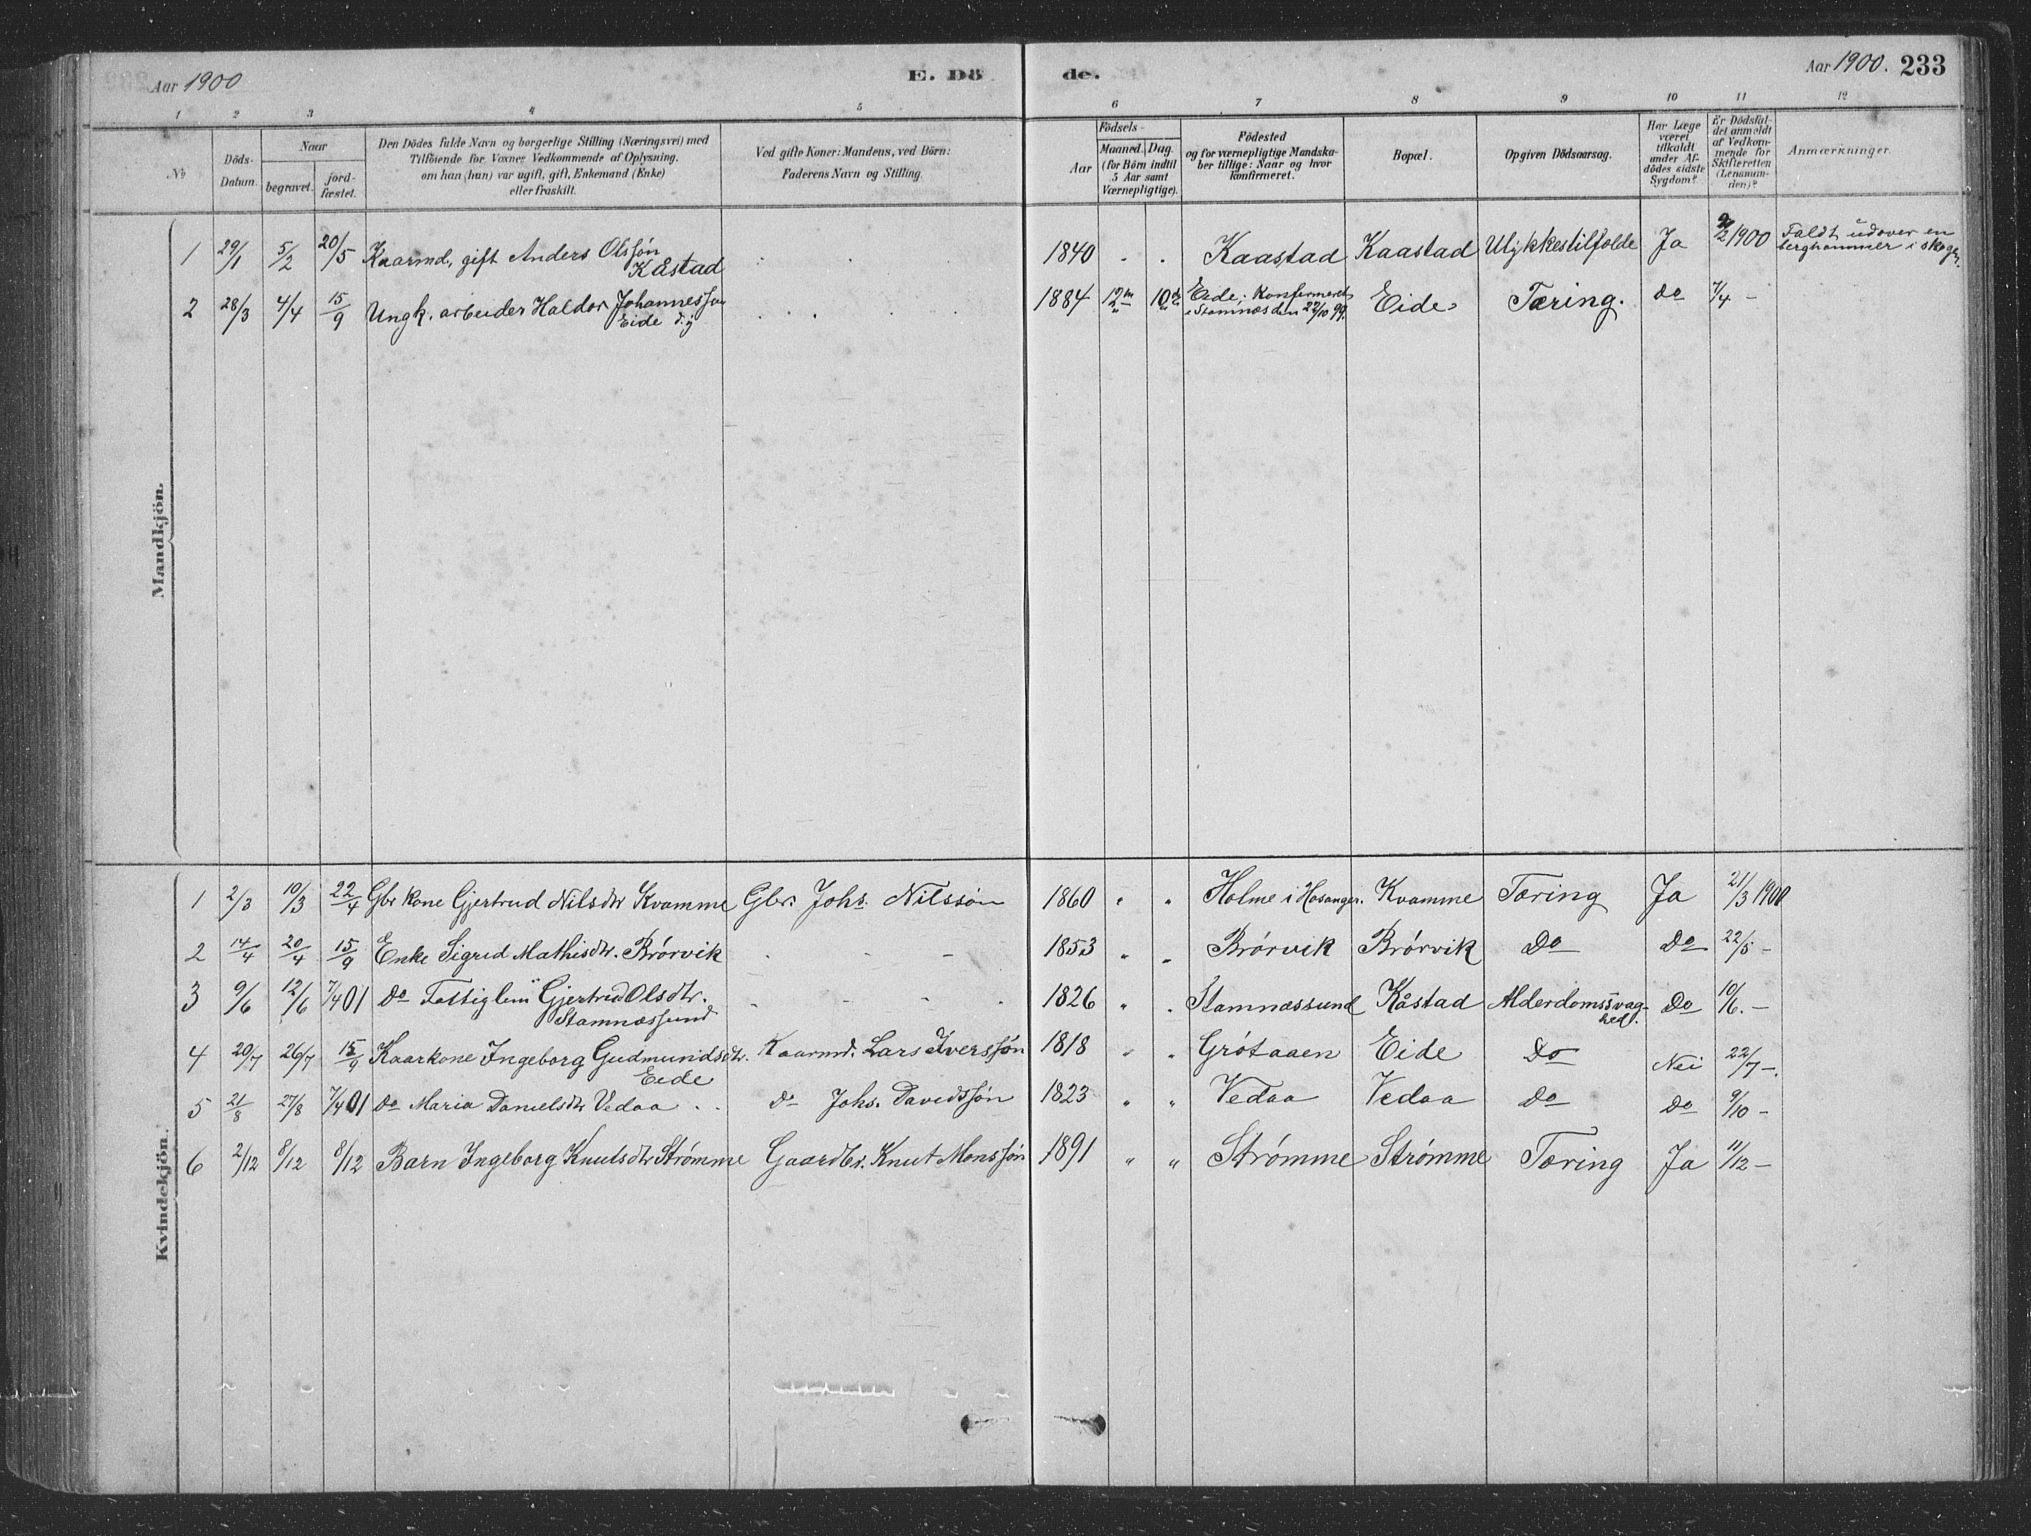 Aar 1900
E. Dö
de.
Aar 1900. 233
1 2 3 4 5 6 7 8 9 10 11 12
No
Döds-
Datum.
Naar
begravet.
jord-
fæstet.
Den Dödes fulde Navn og borgerlige Stilling (Næringsvei) med
Tilföiende for Voxne Vedkommende af Oplysning.
om han (hun) var ugift, gift, Enkemand (Enke)
eller fraskilt.
Ved gifte Koner: Mandens, ved Börn:
Faderens Navn og Stilling.
Födsels-
Aar
Maaned. Dag.
(for Börn indtil
5 Aar samt
Værnepligtige).
Födested
og for værnepligtige Mandska-
ber tillige: Naar og hvor
konfirmeret.
Bopæl.
Opgiven Dödsaarsag.
Har Læge
været
tilkaldt
under Af-
dödes sidste
Sygdom?
Er Dödsfal-
det anmeldt
af Vedkom-
mende for
Skifteretten
(Lensman-
den)?
Anmærkninger.
Mandkjön.
1 29/1 5/2 20/5 Kaarmd, gift Anders Olssøn
Kåstad
1840 Kaastad Kaastad Ulykkestilfælde Ja 9/2 1900 Faldt udover en
berghammer i skogen.
2 28/3 4/4 15/9 Ungk. arbeider Haldor Johannessøn
Eide d.y
1884 12m 10de Eide; Konfirmeret
i Stamnes den 22/10 99.
Eide Tæring. do 7/4 -
Kvindekjön.
1 2/3 10/3 22/4 Gbr kone Gjertrud Nilsdtr Kvamme Gbr. Johs. Nilssøn 1860 " " Holme i Hosanger. Kvamme Tæring Ja 21/3 1900
2 14/4 20/4 15/9 Enke Sigrid Mathisdtr. Brørvik - - - 1853 " " Brørvik Brørvik Do Do 22/5 -
3 9/6 12/6 7/4 01 Do Fattiglem Gjertrud Olsdtr.
Stamnessund
- - - 1826 " " Stamnæssund Kåstad Alderdomssvag-
hed. Do 10/6. -
4 20/7 26/7 15/9 Kaarkone Ingeborg Gudmundsdtr.
Eide
Kaarmd. Lars Iverssøn 1818 " " Grøtaaen Eide Do Nei 22/7 -.
5 21/8 27/8 7/4 01 Do Maria Danielsdtr Vedaa Do Johs. Davidssøn 1823 " " Vedaa Vedaa Do Do 9/10 -
6 2/12 8/12 8/12 Barn Ingeborg Knutsdtr Strømme Gaardbr. Knut Monssøn 1891 " " Strømme Strømme Tæring Ja 11/12 -